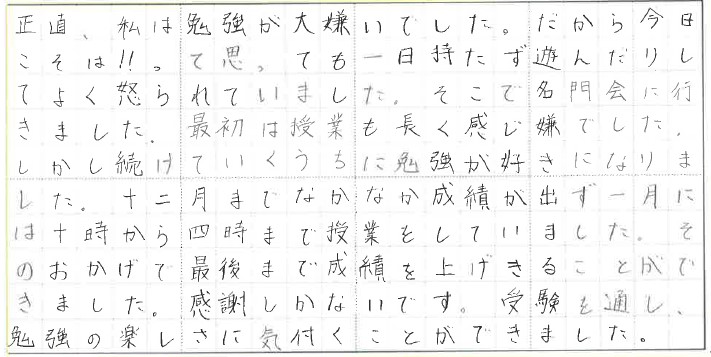 正直、私は勉強が大嫌いでした。だから今日
こそは!!って思っても一日持たず遊んだりし
てよく怒られていました。そこで名門会に行
きました。最初は授業も長く感じ嫌でした。
しかし続けていくうちに勉強が好きになりま
した。十二月までなかなか成績が出ず一月に
は十時から四時まで授業をしていました。そ
のおかげで最後まで成績を上げきることがで
きました。感謝しかないです。受験を通し、
勉強の楽しさに気付くことができました。